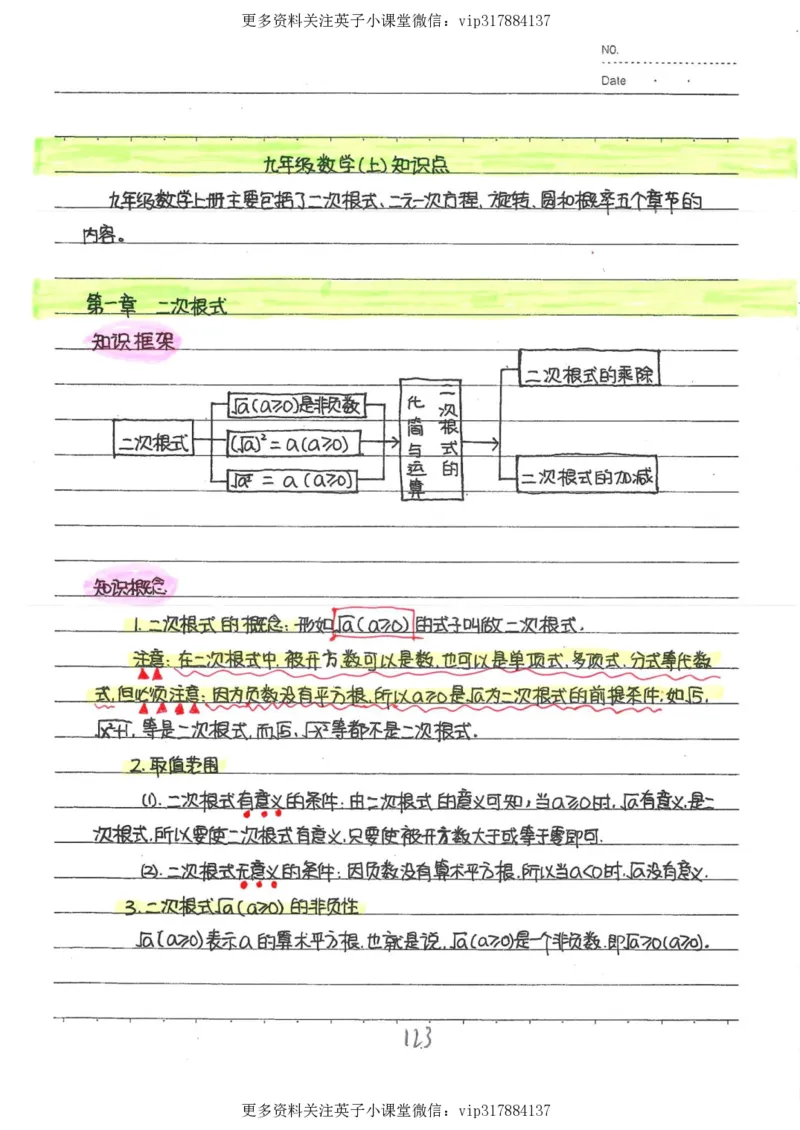 更多资料关注英子小课堂微信：vip317884137
NO.
Date
九年级数学(上)知识点
九年级数学上册主要包括了二次根式、二元一次方程、旋转、圆和概率五个章节的
内容。
第一章 二次根式
知识框架
二次根式
√a(a≥0)是非负数
(√a)²=a(a≥0)
√a²=a(a≥0)
二次根式的
化简与运算
二次根式的乘除
二次根式的加减
知识概念
1.二次根式的概念：形如√a(a≥0)的式子叫做二次根式.
注意：在二次根式中,被开方数可以是数,也可以是单项式,多项式,分式等代数
式,但必须注意：因为负数没有平方根,所以a≥0是√a为二次根式的前提条件;如√5,
√x²+1,等是二次根式,而√5,√-x²等都不是二次根式.
2.取值范围
(1).二次根式有意义的条件：由二次根式的意义可知,当a≥0时,√a有意义,是二
次根式,所以要使二次根式有意义,只要使被开方数大于或等于零即可.
(2).二次根式无意义的条件：因负数没有算术平方根,所以当a<0时,√a没有意义.
3.二次根式√a(a≥0)的非负性
√a(a≥0)表示a的算术平方根,也就是说,√a(a≥0)是一个非负数,即√a≥0(a≥0).
123
更多资料关注英子小课堂微信：vip317884137